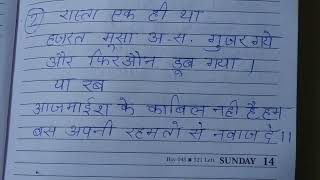 ② रास्ता एक ही था
हजरत मूसा अ.स. गुजर गये
और फिरऔन डूब गया ।
या रब
आजमाईश के काबिल नही है हम
बस अपनी रहमतो से नवाज दे ।।
Day 045 • 321 Left SUNDAY 14